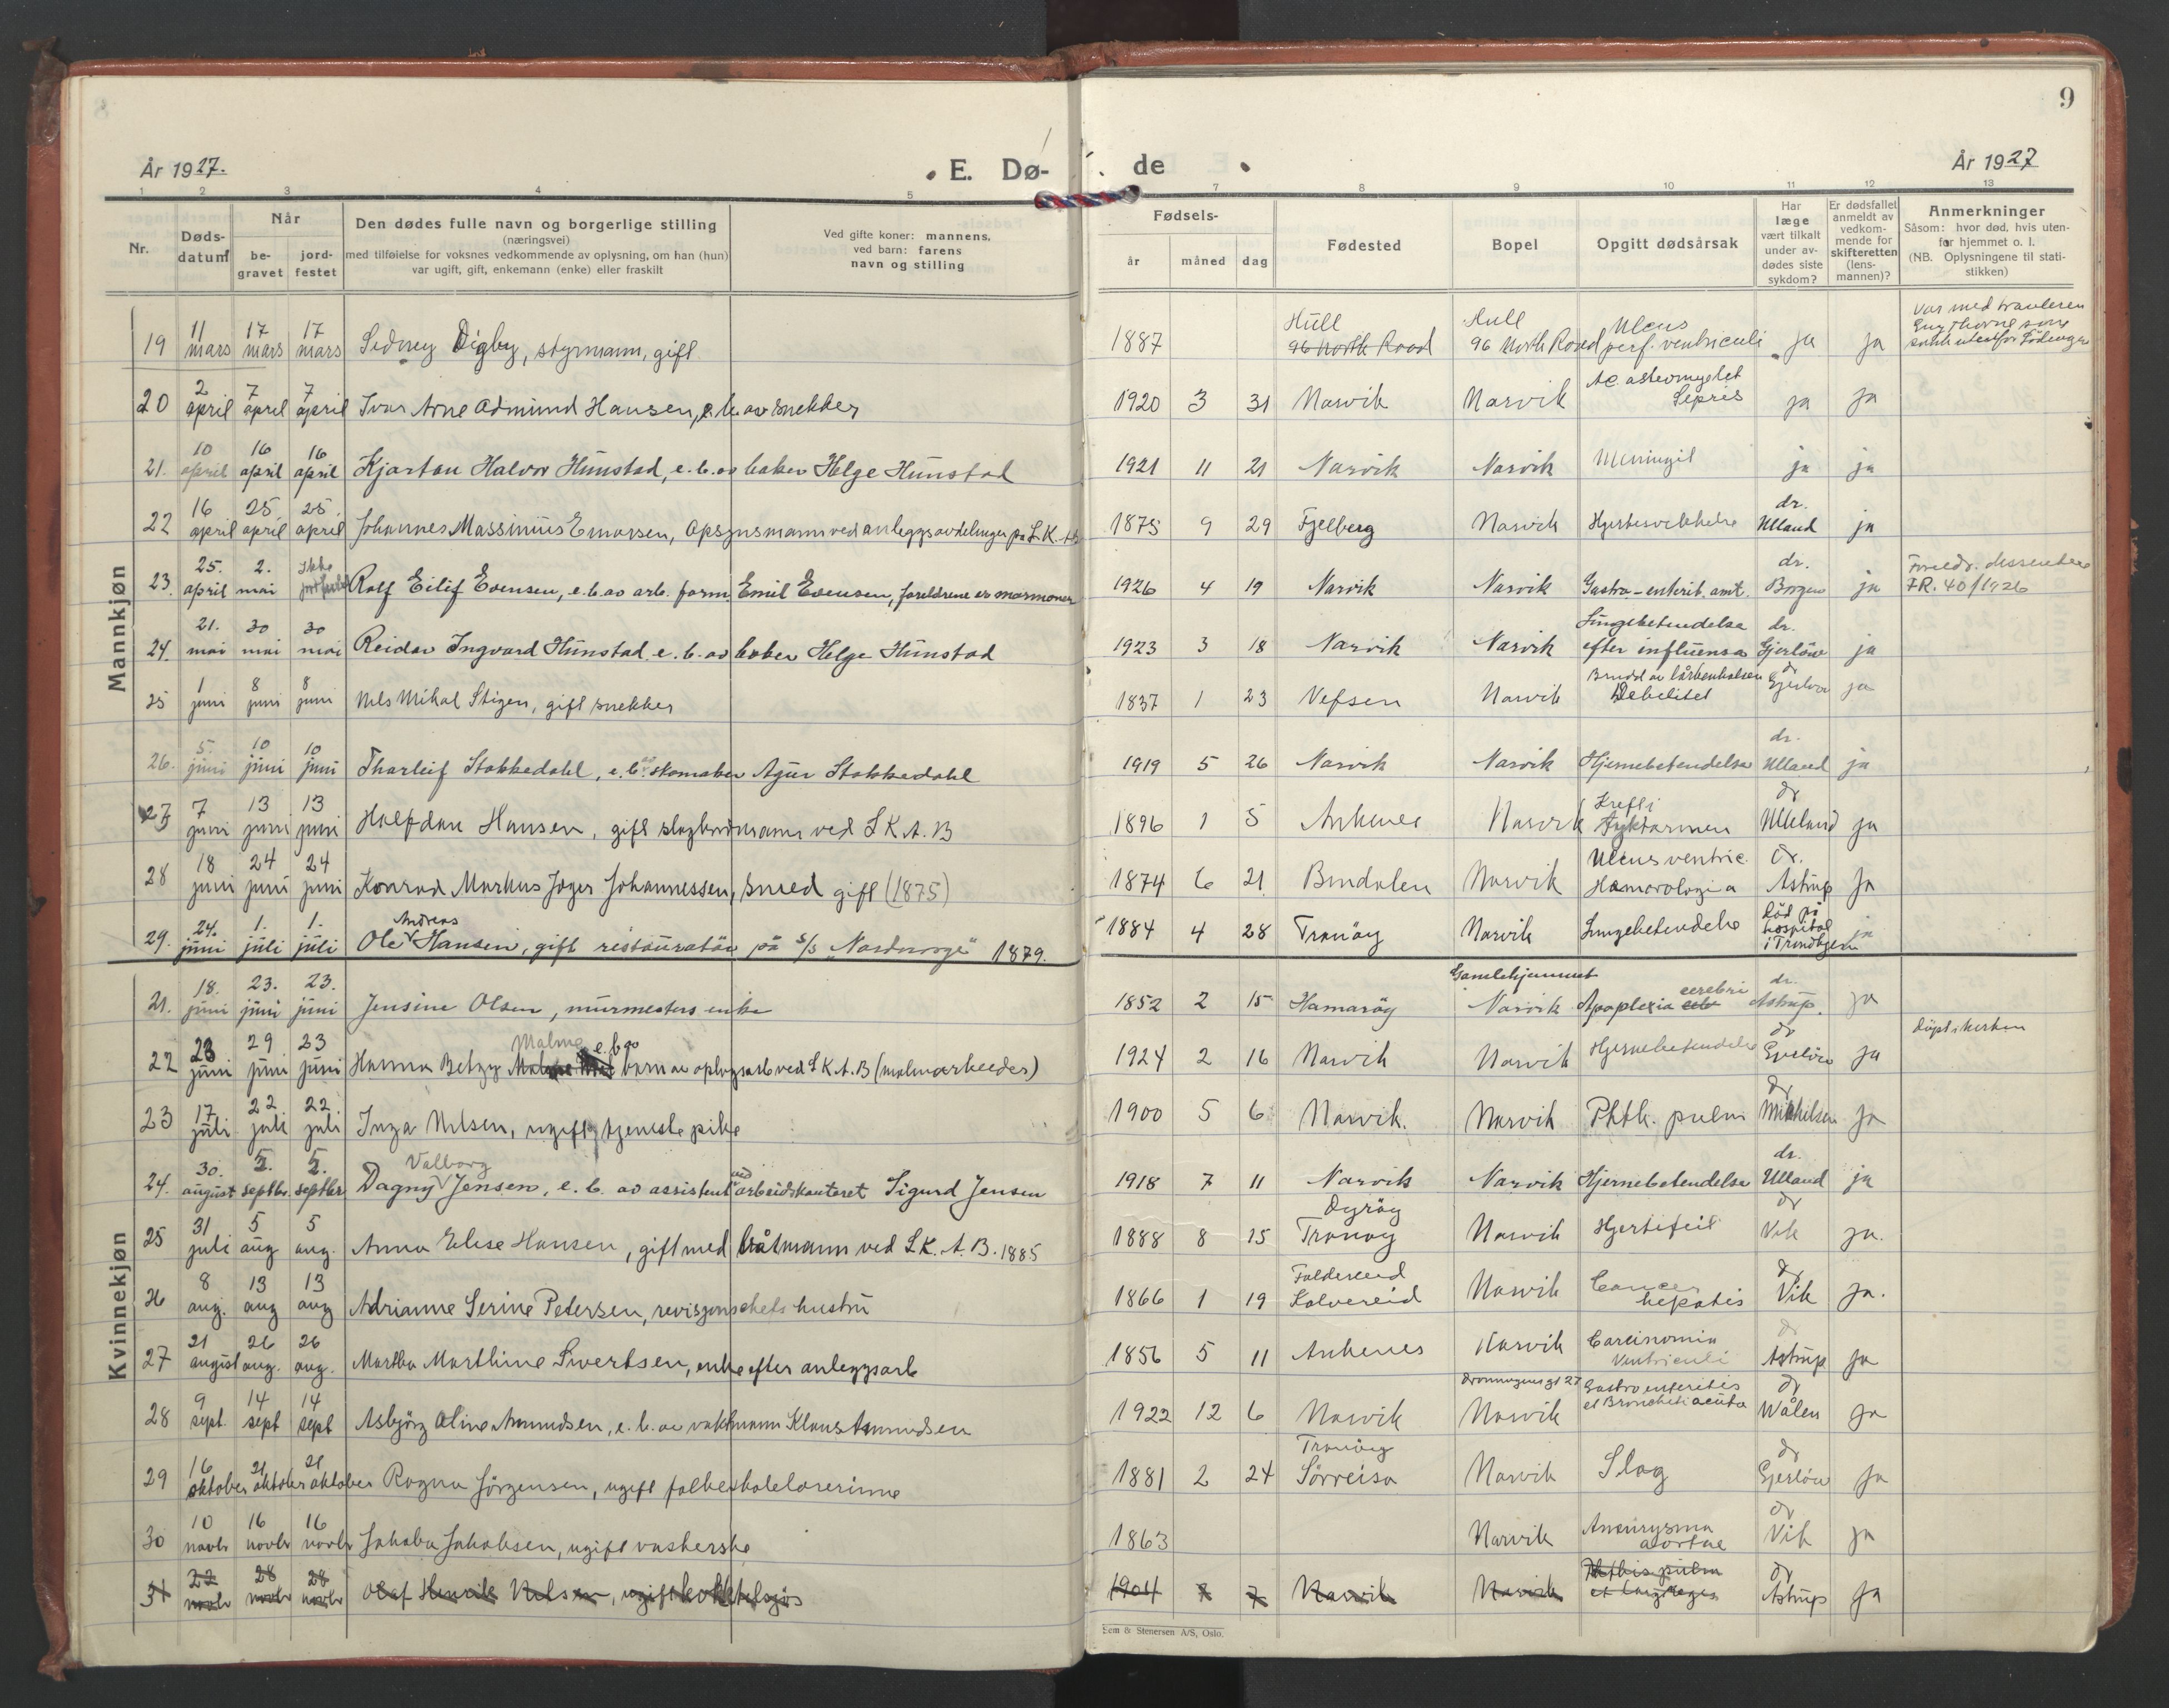 9
År 1927.
E. Dø-
de
År 1927
1 2 3 4 5 7 8 9 10 11 12 13
Nr.
Døds-
datum
Når
be-
gravet
jord-
festet
Den dødes fulle navn og borgerlige stilling
(næringsvei)
med tilføielse for voksnes vedkommende av oplysning, om han (hun)
var ugift, gift, enkemann (enke) eller fraskilt
Ved gifte koner: mannens,
ved barn: farens
navn og stilling
Fødsels-
år måned dag
Fødested
Bopel
Opgitt dødsårsak
Har
læge
vært tilkalt
under av-
dødes siste
sykdom?
Er dødsfallet
anmeldt av
vedkom-
mende for
skifteretten
(lens-
mannen)?
Anmerkninger
Såsom: hvor død, hvis uten-
for hjemmet o. l.
(NB. Oplysningene til stati-
stikken)
Mannkjøn
19 11 mars 17 mars 17 mars Sidney Digby, styrmann, gift 1887 Hull 96 North Road Hull 96 North Road Ulcus perf. ventriculi ja ja Var med trauleren
20 2 april 7 april 7 april Ivar Arne Admund Hansen, e.b. av snekker 1920 3 31 Narvik Narvik Ac. osteomyelit Sepsis ja ja
21. 10 april 16 april 16 april Kjartan Halvor Hunstad, e.b. av baker Helge Hunstad 1921 11 21 Narvik Narvik Meningit ja ja
22 16 april 25. april 25. april Johannes Massinius Enorsen, opsynsmann ved anleggsavdelingen på L.K.A.B 1875 9 29 Fjelberg Narvik Hjertesvikkelse dr. Ulland ja
23. 25. april 2. mai Ikke jordfestet Rolf Eilif Evensen, e.b. av arb. form. Emil Evensen, foreldrene er mormoner 1926 4 19 Narvik Narvik Gastro-enterit. amt. dr. Borgen ja Foreldr. dissentere FR. 40/1926
24. 21. mai 30 mai 30 mai Reidar Ingvard Hunstad e.b. av baker Helge Hunstad 1923 3 18 Narvik Narvik Lungebetendelse efter influensa dr. Gjerløw ja
25 1 juni 8 juni 8 juni Nils Mikal Stigen, gift snekker 1837 1 23 Vefsen Narvik Brudd av lårbenhalsen Debilitet dr Gjerløw ja
26. 5. juni 10 juni 10 juni Thorleif Stokkedahl, e.b. av skomaker Agur Stokkedahl 1919 5 26 Narvik Narvik Hjernebetendelse dr. Ulland ja
27 7 juni 13 juni 13 juni Halfdan Hansen, gift slagbordmann ved L K.A.B 1896 1 5 Ankenes Narvik Kreft i tyktarmen dr Ulland ja
28 18 juni 24 juni 24 juni Konrad Markus Jæger Johannessen, smed gift (1875) 1874 6 21 Bindalen Narvik Ulcus ventric. Hæmorologia dr. Astrup ja
29. 24. juni 1. juli 1. juli Ole Andreas Hansen, gift restauratør på s/s "Nordnorge" 1879. 1884 4 28 Tranøy Narvik Lungebetendelse død på hospital i Trondhjem ja
Kvinnekjøn
21. 18. juni 23. juni 23. juni Jensine Olsen, murmesters enke 1852 2 15 Hamarøy Gamlehjemmet Narvik Apoplexia cerebri dr. Astrup. ja
22 23 juni 29 juni 23 juni Hanna Betzy Malme e.b av barn av oplagsarb ved L K.A.B (malmarbeider) 1924 2 16 Narvik Narvik Hjernebetendelse dr Gjerløw ja døpt i kirken
23 17. juli 22. juli 22. juli Inga Nilsen, ugift tjenestepike 1900 5 6 Narvik. Narvik Phth. pulm dr Mikkelsen ja
24. 30. august 5. septbr. 5. septbr Dagny Valborg Jensen, e.b. av assistent ved arbeidskontoret Sigurd Jensen 1918 7 11 Narvik Narvik Hjernebetendelse dr. Ulland ja
25 31 juli 5 aug 5 aug. Anna Elise Hansen, gift med båtmann ved L.K.A.B. 1885 1888 8 15 Dyrøy Tranøy Narvik Hjertefeil dr Vik ja.
26 8 aug. 13 aug 13 aug Adrianne Serine Petersen, revisjonschefs hustru 1866 1 19 Foldereid Kolvereid Narvik Cancer hepatis dr Vik ja.
27 21 august 26 aug. 26 aug. Martha Marthine Sivertsen, enke efter anleggsarb 1856 5 11 Ankenes Narvik Carcinomia Ventriculi dr Astrup ja
28 9 sept. 14 sept 14 sept Asbjørg Oline Amundsen, e.b. av vaktmann Klaus Amundsen 1922 12 6 Narvik Dronningensgt 27 Narvik Gastroenteritis et Bronchiti acuta dr Wålen ja
29 16 oktober 21 oktober 21 oktober Ragna Jørgensen, ugift folkeskolelærerinne 1881 2 24 Tranøy Sørreisa Narvik Slag dr Gjerløw ja
30 10 novbr 16 novbr 16 novbr Jakoba Jakobsen, ugift vaskerske 1863 Narvik Aneurysma aortae dr Vik ja
31 22 novbr 28 novbr 28 novbr Olaf Henrik Nilsen, ugift kokk tilsjøs 1904 7 7 Narvik Narvik Phthis pulm et laryngis dr Astrup ja
Sem & Stenersen A/S, Oslo.